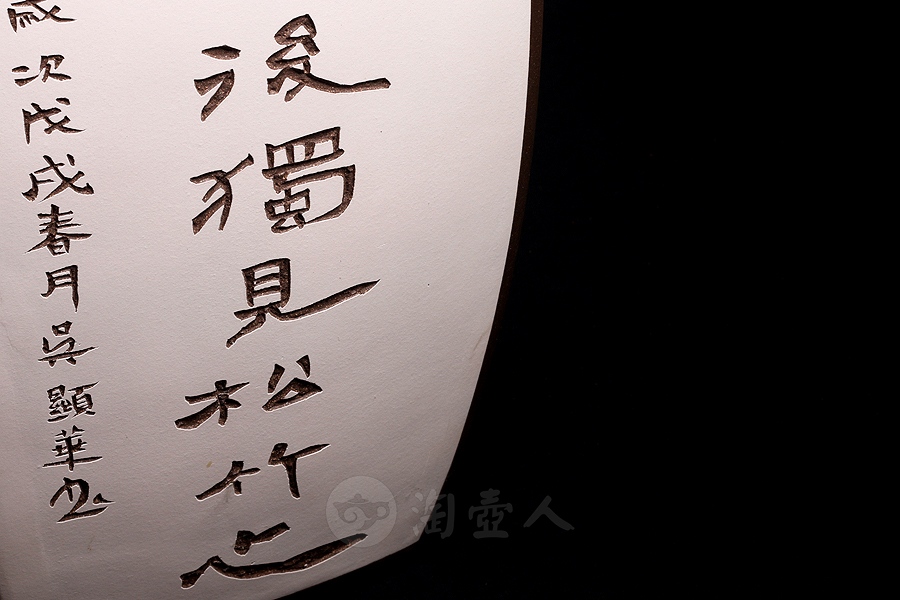 後獨見松竹心
歲次戊戌春月吳顯華书
淘壺人